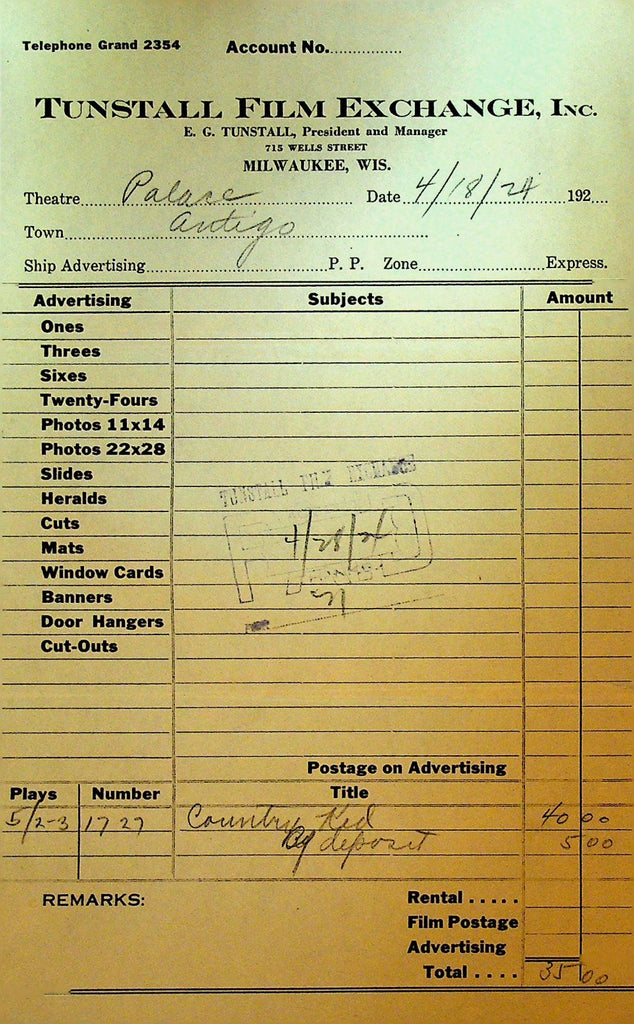 Telephone Grand 2354 Account No.................
TUNSTALL FILM EXCHANGE, INC.
E. G. TUNSTALL, President and Manager
715 WELLS STREET
MILWAUKEE, WIS.
Theatre Palace Date 4/18/24 192....
Town Antigo
Ship Advertising............P. P. Zone............Express.
Advertising Subjects Amount
Ones
Threes
Sixes
Twenty-Fours
Photos 11x14
Photos 22x28
Slides
TUNSTALL FILM EXCHANGE
Heralds
Cuts
4/28/24
Mats
Window Cards
Banners
Door Hangers
Cut-Outs
Postage on Advertising
Plays Number Title
5/2-3 1727 Country Kid 40 00
By deposit 5 00
REMARKS: Rental . . . . .
Film Postage
Advertising
Total . . . . 35 00